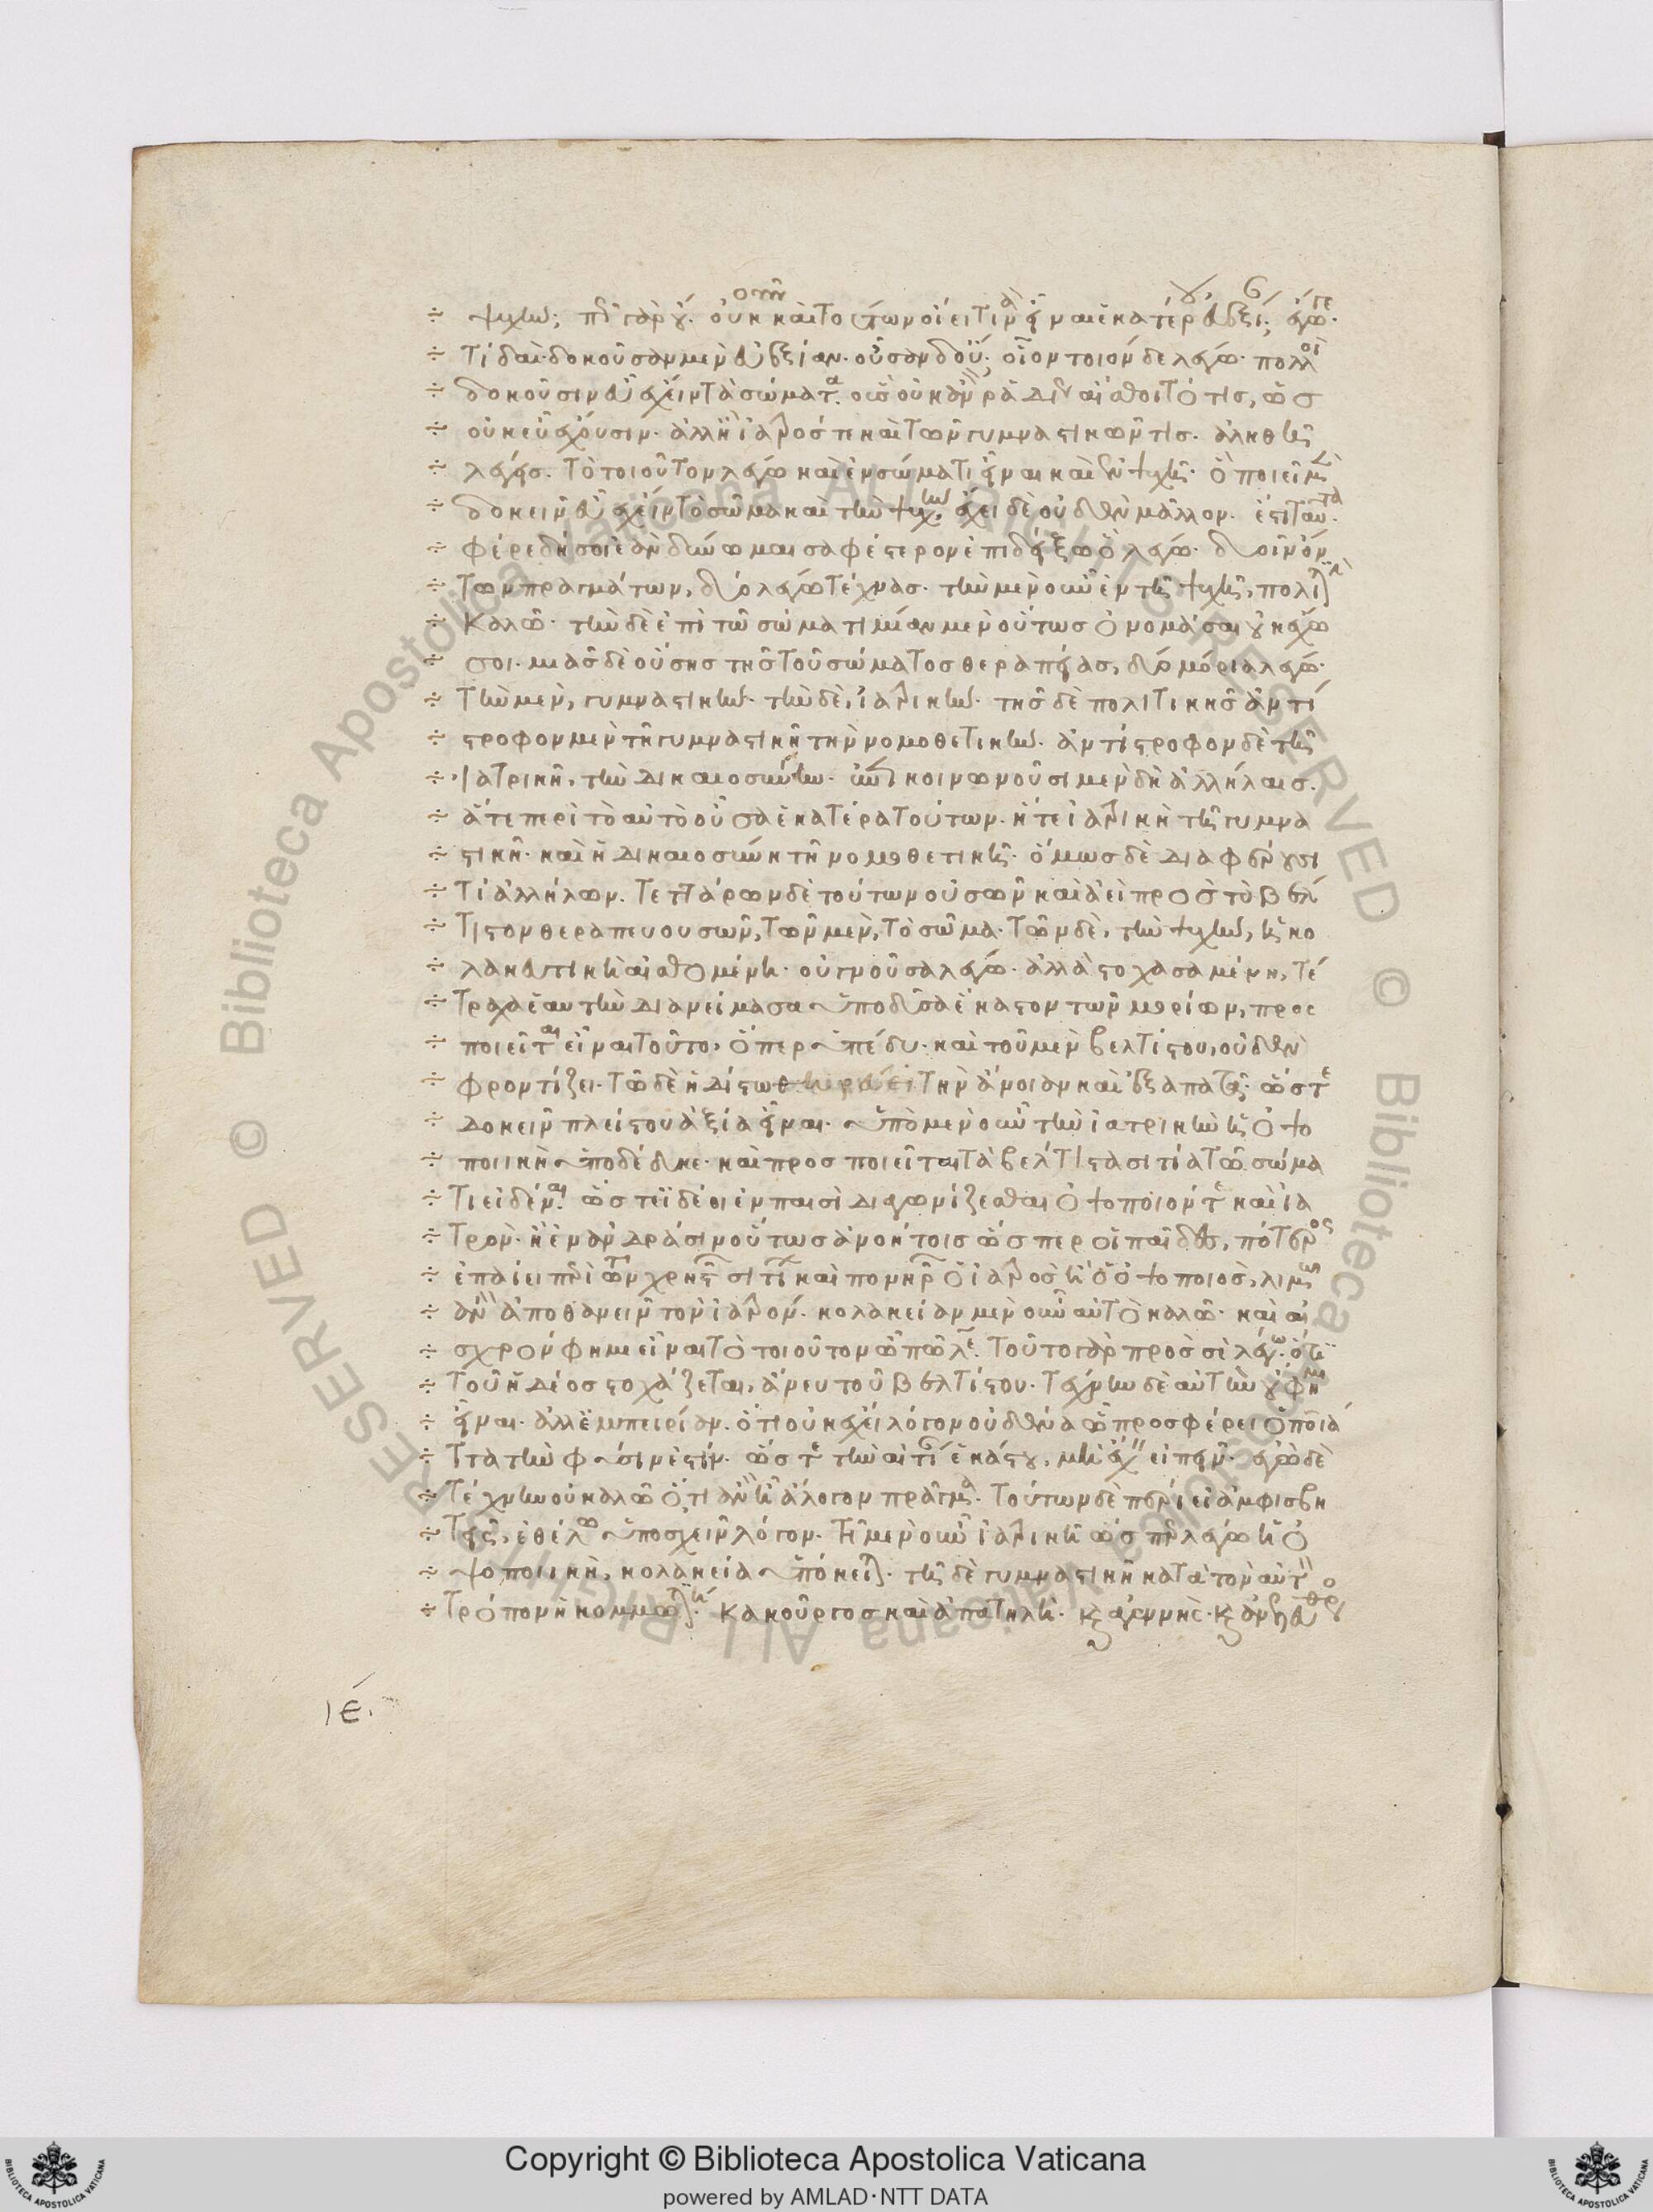 ψυχήν; πῶς γὰρ οὔ. οὐκοῦν καὶ τούτων οἴει τινὰ εἶναι ἑκατέρου εὐεξίαν; ἔγωγε.
Τί δαί· δοκοῦσαν μὲν εὐεξίαν· οὖσαν δ' οὔ; οἷον τοιόνδε λέγω· πολλοὶ
δοκοῦσιν εὖ ἔχειν τὰ σώματα. οὓς οὐκ ἂν ῥαδίως αἴσθοιτό τις, ὡς
οὐκ εὖ ἔχουσιν· ἀλλ' ἢ ἰατρός τε καὶ τῶν γυμναστικῶν τις. ἀληθῆ
λέγεις. Τὸ τοιοῦτον λέγω καὶ ἐν σώματι εἶναι καὶ ἐν ψυχῇ· ὃ ποιεῖ μὲν
δοκεῖν εὖ ἔχειν τὸ σῶμα καὶ τὴν ψυχήν, ἔχει δὲ οὐδὲν μᾶλλον. ἔστι ταῦτα.
φέρε δή σοι ἐὰν δύνωμαι σαφέστερον ἐπιδείξω ὃ λέγω· δυοῖν ὄντοιν
τῶν πραγμάτων, δύο λέγω τέχνας. τὴν μὲν οὖν ἐν τῇ ψυχῇ, πολιτικὴν
καλῶ· τὴν δὲ ἐπὶ τῶ σώματι μίαν μὲν οὕτως ὀνομάσαι οὐκ ἔχω
σοι. μιᾶς δὲ οὔσης τῆς τοῦ σώματος θεραπείας, δύο μόρια λέγω·
τὴν μὲν, γυμναστικήν· τὴν δὲ, ἰατρικήν· τῆς δὲ πολιτικῆς ἀντί
στροφον μὲν τῆ γυμναστικῆ τὴν νομοθετικήν. ἀντίστροφον δὲ τῇ
ἰατρικῆ, τὴν δικαιοσύνην. ἐπικοινωνοῦσι μὲν δὴ ἀλλήλαις.
ἅτε περὶ τὸ αὐτὸ οὖσαι ἑκάτεραι τούτων. ἥ τε ἰατρικὴ τῇ γυμνα
στικῆ· καὶ ἡ δικαιοσύνη τῆ νομοθετικῇ· ὅμως δὲ διαφέρουσί
τι ἀλλήλων. Τεττάρων δὲ τούτων οὐσῶν καὶ ἀεὶ πρὸς τὸ βέλ
τιστον θεραπευουσῶν, τῶν μὲν, τὸ σῶμα· τῶν δὲ, τὴν ψυχήν, ἡ κο
λακευτικὴ αἰσθομένη· οὐ γνοῦσα λέγω· ἀλλὰ στοχασαμένη, τέ
τραχα ἑαυτὴν διανείμασα ὑποδῦσα ἕκαστον τῶν μορίων, προσ
ποιεῖται εἶναι τοῦτο, ὅπερ ὑπέδυ· καὶ τοῦ μὲν βελτίστου, οὐδὲν
φροντίζει. τῶ δὲ ἡδίστω θηρεύει τὴν ἄνοιαν καὶ ἐξαπατᾷ· ὥστε
δοκεῖν πλείστου ἀξία εἶναι. ὑπὸ μὲν οὖν τὴν ἰατρικὴν ἡ ὀψο
ποιικὴ ὑποδέδυκε· καὶ προσποιεῖται τὰ βέλτιστα σιτία τῶ σώμα
τι εἰδέναι. ὥστ' εἰ δέοι ἐν παισὶ διαγωνίζεσθαι ὀψοποιόν τε καὶ ἰα
τρόν. ἢ ἐν ἀνδράσιν οὕτως ἀνοήτοις ὥσπερ οἱ παῖδες, πότερος
ἐπαΐει περὶ τῶν χρηστῶν σιτίων καὶ πονηρῶν ὁ ἰατρὸς ἢ ὁ ὀψοποιὸς, λιμῷ
ἂν ἀποθανεῖν τὸν ἰατρόν. κολακείαν μὲν οὖν αὐτὸ καλῶ· καὶ αἰ
σχρόν φημι εἶναι τὸ τοιοῦτον ὦ πῶλε. τοῦτο γὰρ πρὸς σὲ λέγω. ὅτι
τοῦ ἡδέος στοχάζεται, ἄνευ τοῦ βελτίστου. τέχνην δὲ αὐτὴν οὔ φημι
εἶναι. ἀλλ' ἐμπειρίαν. ὅτι οὐκ ἔχει λόγον οὐδένα ὧ προσφέρει ὁποῖ' ἄ
ττα τὴν φύσιν ἐστίν. ὥστε τὴν αἰτίαν ἑκάστου, μὴ ἔχειν εἰπεῖν. ἐγὼ δὲ
τέχνην οὐ καλῶ ὅ,τι ἂν ᾖ ἄλογον πρᾶγμα. τούτων δὲ πέρι εἰ ἀμφισβη
τεῖς, ἐθέλω ὑποσχεῖν λόγον. Τῇ μὲν οὖν ἰατρικῇ ὥσπερ λέγω ἡ ὀ
ψοποιικὴ, κολακεία ὑπόκειται. τῇ δὲ γυμναστικῆ κατὰ τὸν αὐτὸν
τρόπον ἡ κομμωτική. κακοῦργος καὶ ἀπατηλή. καὶ ἀγεννὴς. καὶ ἀνελεύθερος
ιέ.
© Biblioteca Apostolica Vaticana ALL RIGHTS RESERVED
Copyright © Biblioteca Apostolica Vaticana
powered by AMLAD·NTT DATA